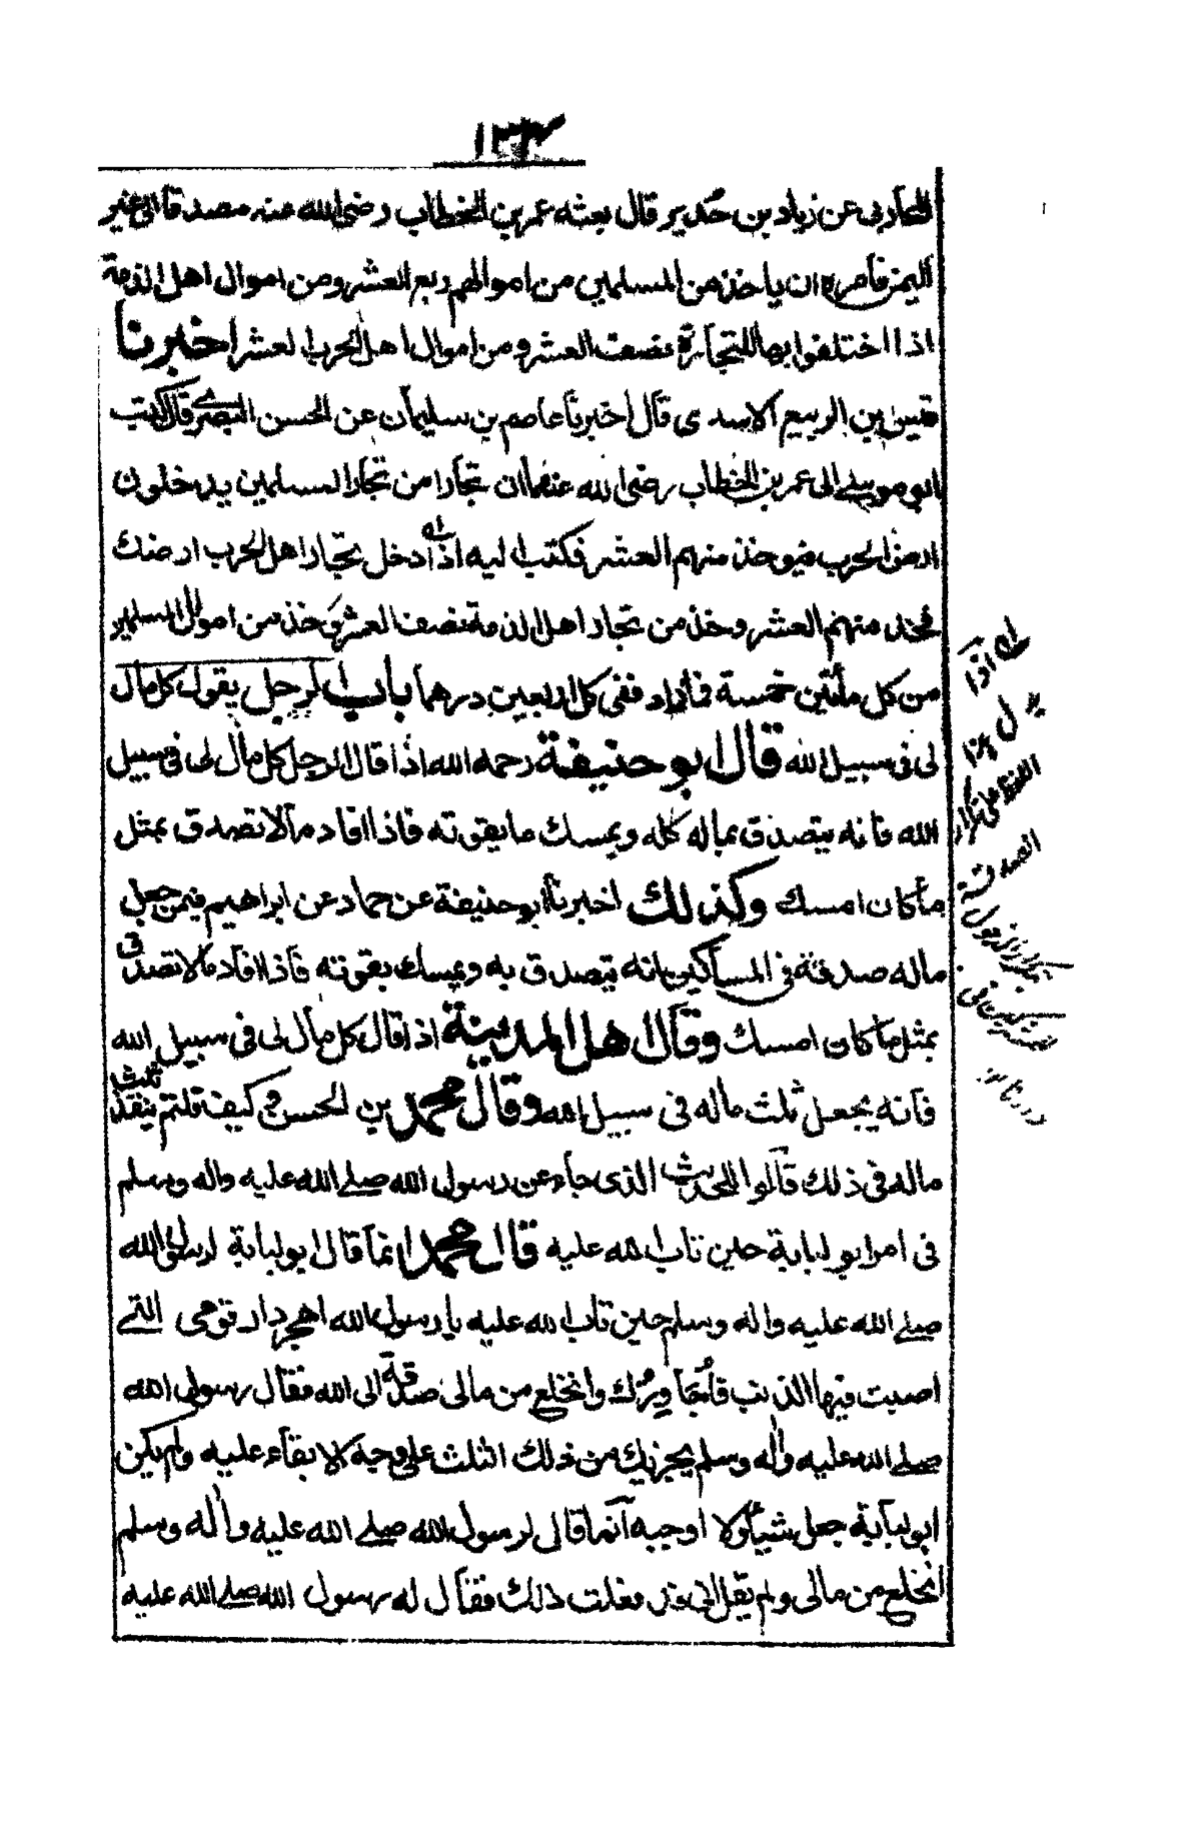 ١٣٤
المحاربى عن زياد بن حُدير قال بعثه عمر بن الخطاب رضى الله عنه مصدقا الى عين
اليمن فامره ان ياخذ من المسلمين من اموالهم ربع العشر ومن اموال اهل الذمة
اذا اختلفوا بها للتجارة نصف العشر ومن اموال اهل الحرب العشر اخبرنا
قيس بن الربيع الاسدى قال اخبرنا عاصم بن سليمان عن الحسن البصرى قال كتب
ابو موسى الى عمر بن الخطاب رضى الله عنهما ان تجارا من تجار المسلمين يدخلون
ارض الحرب فيوخذ منهم العشر فكتب اليه اذا دخل تجار اهل الحرب ارضك
فخذ منهم العشر وخذ من تجار اهل الذمة نصف العشر وخذ من اموال المسلمين
من كل مأتين خمسة فما زاد ففى كل اربعين درهما باب الرجل يقول كل مال
لى فى سبيل الله قال ابو حنيفة رحمه الله اذا قال الرجل كل مال لى فى سبيل
الله فانه يتصدق بماله كله ويمسك ما يقوته فاذا افاد مالا تصدق بمثل
ما كان امسك وكذلك اخبرنا ابو حنيفة عن حماد عن ابراهيم فيمن جعل
ماله صدقة فى المساكين بانه يتصدق به ويمسك بقوته فاذا افاد مالا تصدق
بمثل ما كان امسك وقال اهل المدينة اذا قال كل مال لى فى سبيل الله
فانه يجعل ثلث ماله فى سبيل الله وقال محمد بن الحسن و كيف قلتم ينفذ ثلث
ماله فى ذلك قالوا للحديث الذى جاء عن رسول الله صلى الله عليه واله وسلم
فى امر ابو لبابة حين تاب الله عليه قال محمد انما قال ابو لبابة لرسول الله
صلى الله عليه واله وسلم حين تاب الله عليه يا رسول الله اهجر دار قومى التى
اصبت فيها الذنب فاُجَاوِرُك وانخلع من مالى صدقة الى الله فقال رسول الله
صلى الله عليه واله وسلم يجزيك من ذلك الثلث على وجه الابقاء عليه ولم يكن
ابو لبابة جعل شيئا ولا اوجبه انما قال لرسول الله صلى الله عليه واله وسلم
انخلع من مالى ولم يقل انى قد فعلت ذلك فقال له رسول الله صلى الله عليه